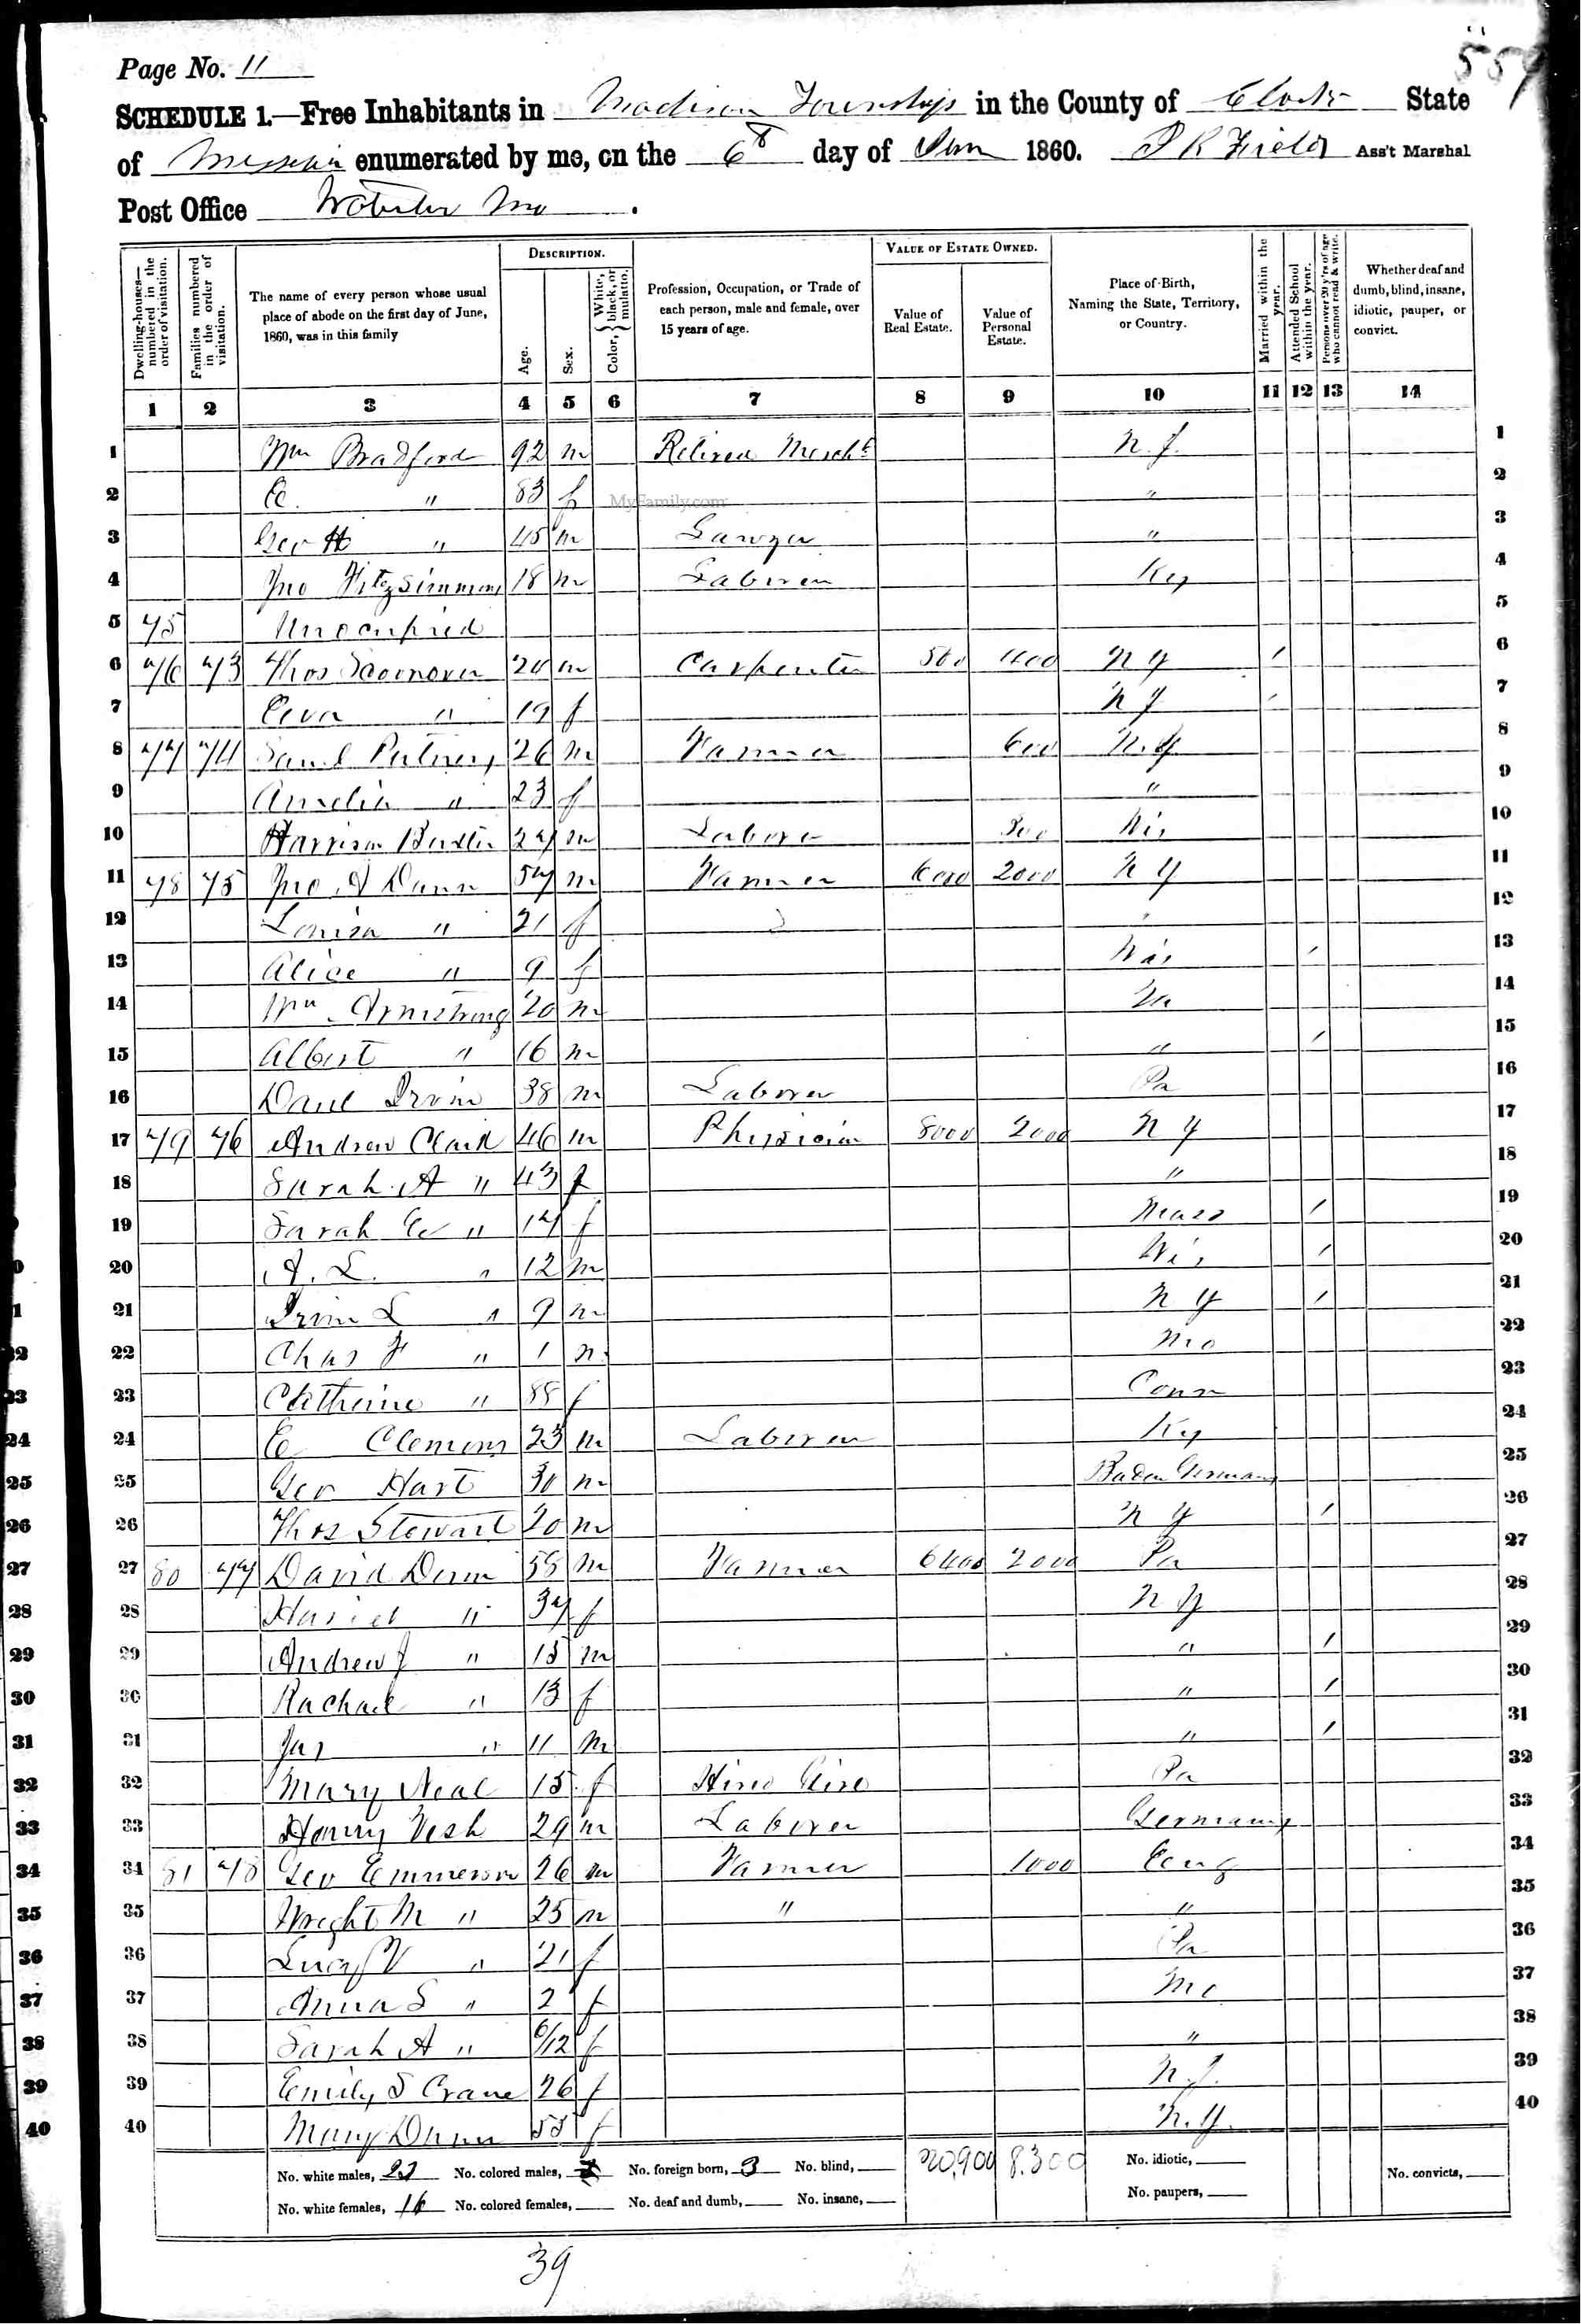 559
Page No. 11
SCHEDULE 1.—Free Inhabitants in Madison Township in the County of Clark State
of Missouri enumerated by me, on the 6th day of June 1860. Ass't Marshal
Post Office Webster Mo.
Dwelling-houses—numbered in the order of visitation. Families numbered in the order of visitation. The name of every person whose usual place of abode on the first day of June, 1860, was in this family DESCRIPTION. Age. Sex. Color, White, black, or mulatto. Profession, Occupation, or Trade of each person, male and female, over 15 years of age. VALUE OF ESTATE OWNED. Value of Real Estate. Value of Personal Estate. Place of Birth, Naming the State, Territory, or Country. Married within the year. Attended School within the year. Persons over 20 y'rs of age who cannot read & write. Whether deaf and dumb, blind, insane, idiotic, pauper, or convict.
1 2 3 4 5 6 7 8 9 10 11 12 13 14
1 Wm Bradford 92 m Retired Mercht N. J. 1
2 E. " 83 f " 2
MyFamily.com
3 Geo H " 45 m Lawyer " 3
4 Jno Fitzsimmons 18 m Laborer Ky 4
5 75 Unoccupied 5
6 76 73 Thos 24 m Carpenter 500 400 N Y / 6
7 " 19 f N Y / 7
8 77 74 Saml Putney 26 m Farmer 600 N. Y. 8
9 Amelia " 23 f " 9
10 Harrison 27 m Laborer 300 Wis 10
11 78 75 Jno A Dunn 57 m Farmer 6000 2000 N Y 11
12 Louisa " 21 f " 12
13 Alice " 9 f Wis / 13
14 Wm Armstrong 20 m 14
15 Albert " 16 m " / 15
16 Danl Irvin 38 m Laborer Pa 16
17 79 76 Andrew Clark 46 m Physician 8000 2000 N Y 17
18 Sarah A " 43 f " 18
19 Sarah E " 17 f Mass / 19
20 A. L. " 12 m Wis / 20
21 Irvin L " 9 m N Y / 21
22 Chas F " 1 m Mo 22
23 Catherine " 88 f Conn 23
24 E Clemons 23 m Laborer Ky 24
25 Geo Hart 30 m Baden Germany 25
26 Thos Stewart 20 m N Y / 26
27 80 77 David Dunn 58 m Farmer 6400 2000 Pa 27
28 Hariet " 37 f N Y 28
29 Andrew J " 15 m " / 29
30 Rachael " 13 f " / 30
31 Jas " 11 m " / 31
32 Mary Neal 15 f Hired Girl Pa 32
33 Henry Vesh 29 m Laborer Germany 33
34 81 78 Geo Emmerson 26 m Farmer 1000 Eng 34
35 Wright M " 25 m " " 35
36 Lucy V " 21 f Pa 36
37 Anna S " 2 f Mo 37
38 Sarah A " 6/12 f " 38
39 Emily S Crane 26 f N. J. 39
40 Mary Dunn 55 f N. Y. 40
No. white males, 23 No. colored males, No. foreign born, 3 No. blind, 20,900 8,300 No. idiotic, No. convicts,
No. white females, 16 No. colored females, No. deaf and dumb, No. insane, No. paupers,
39